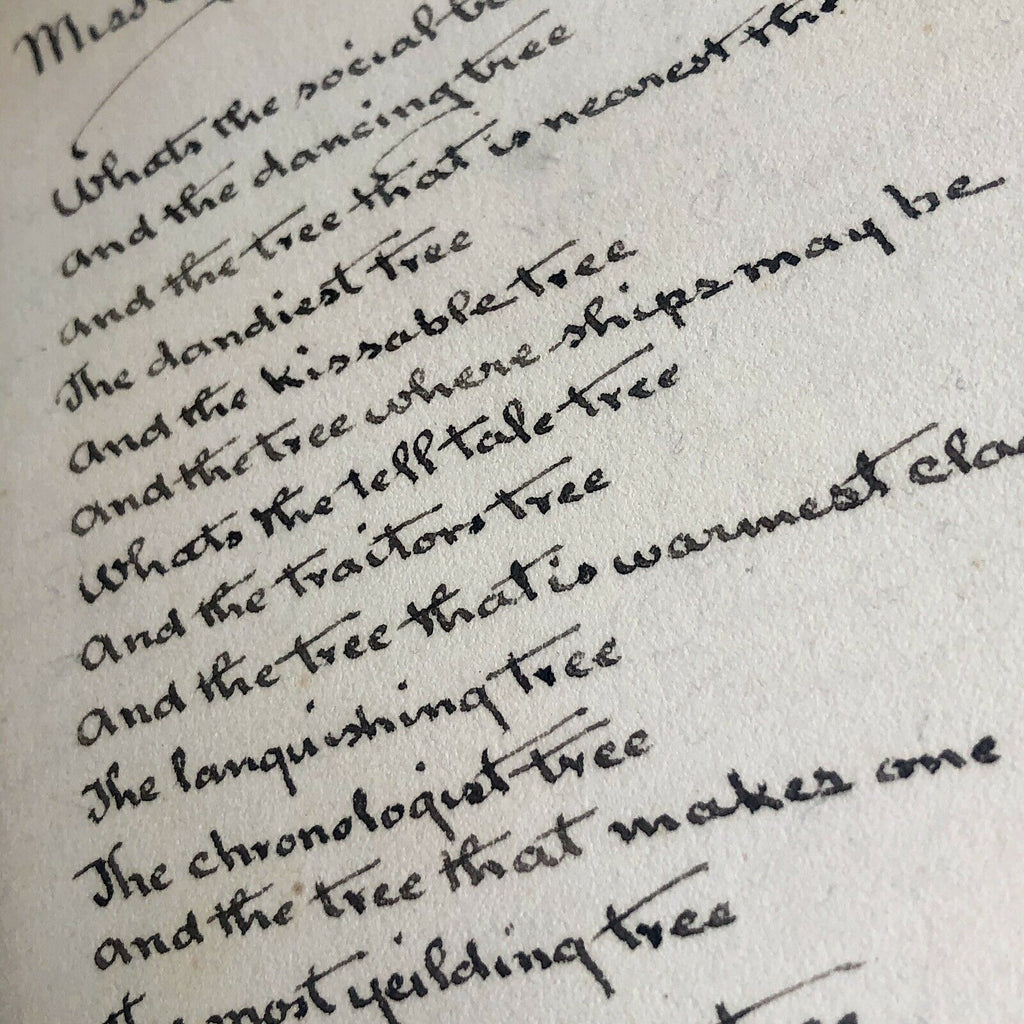 Miss
Whats the social
and the dancing tree
and the tree that is nearest the
The dandiest tree
And the kissable tree
And the tree where ships may be
Whats the tell tale tree
And the traitors tree
And the tree that is warmest
The languishing tree
The chronologist tree
and the tree that makes one
most yeilding tree